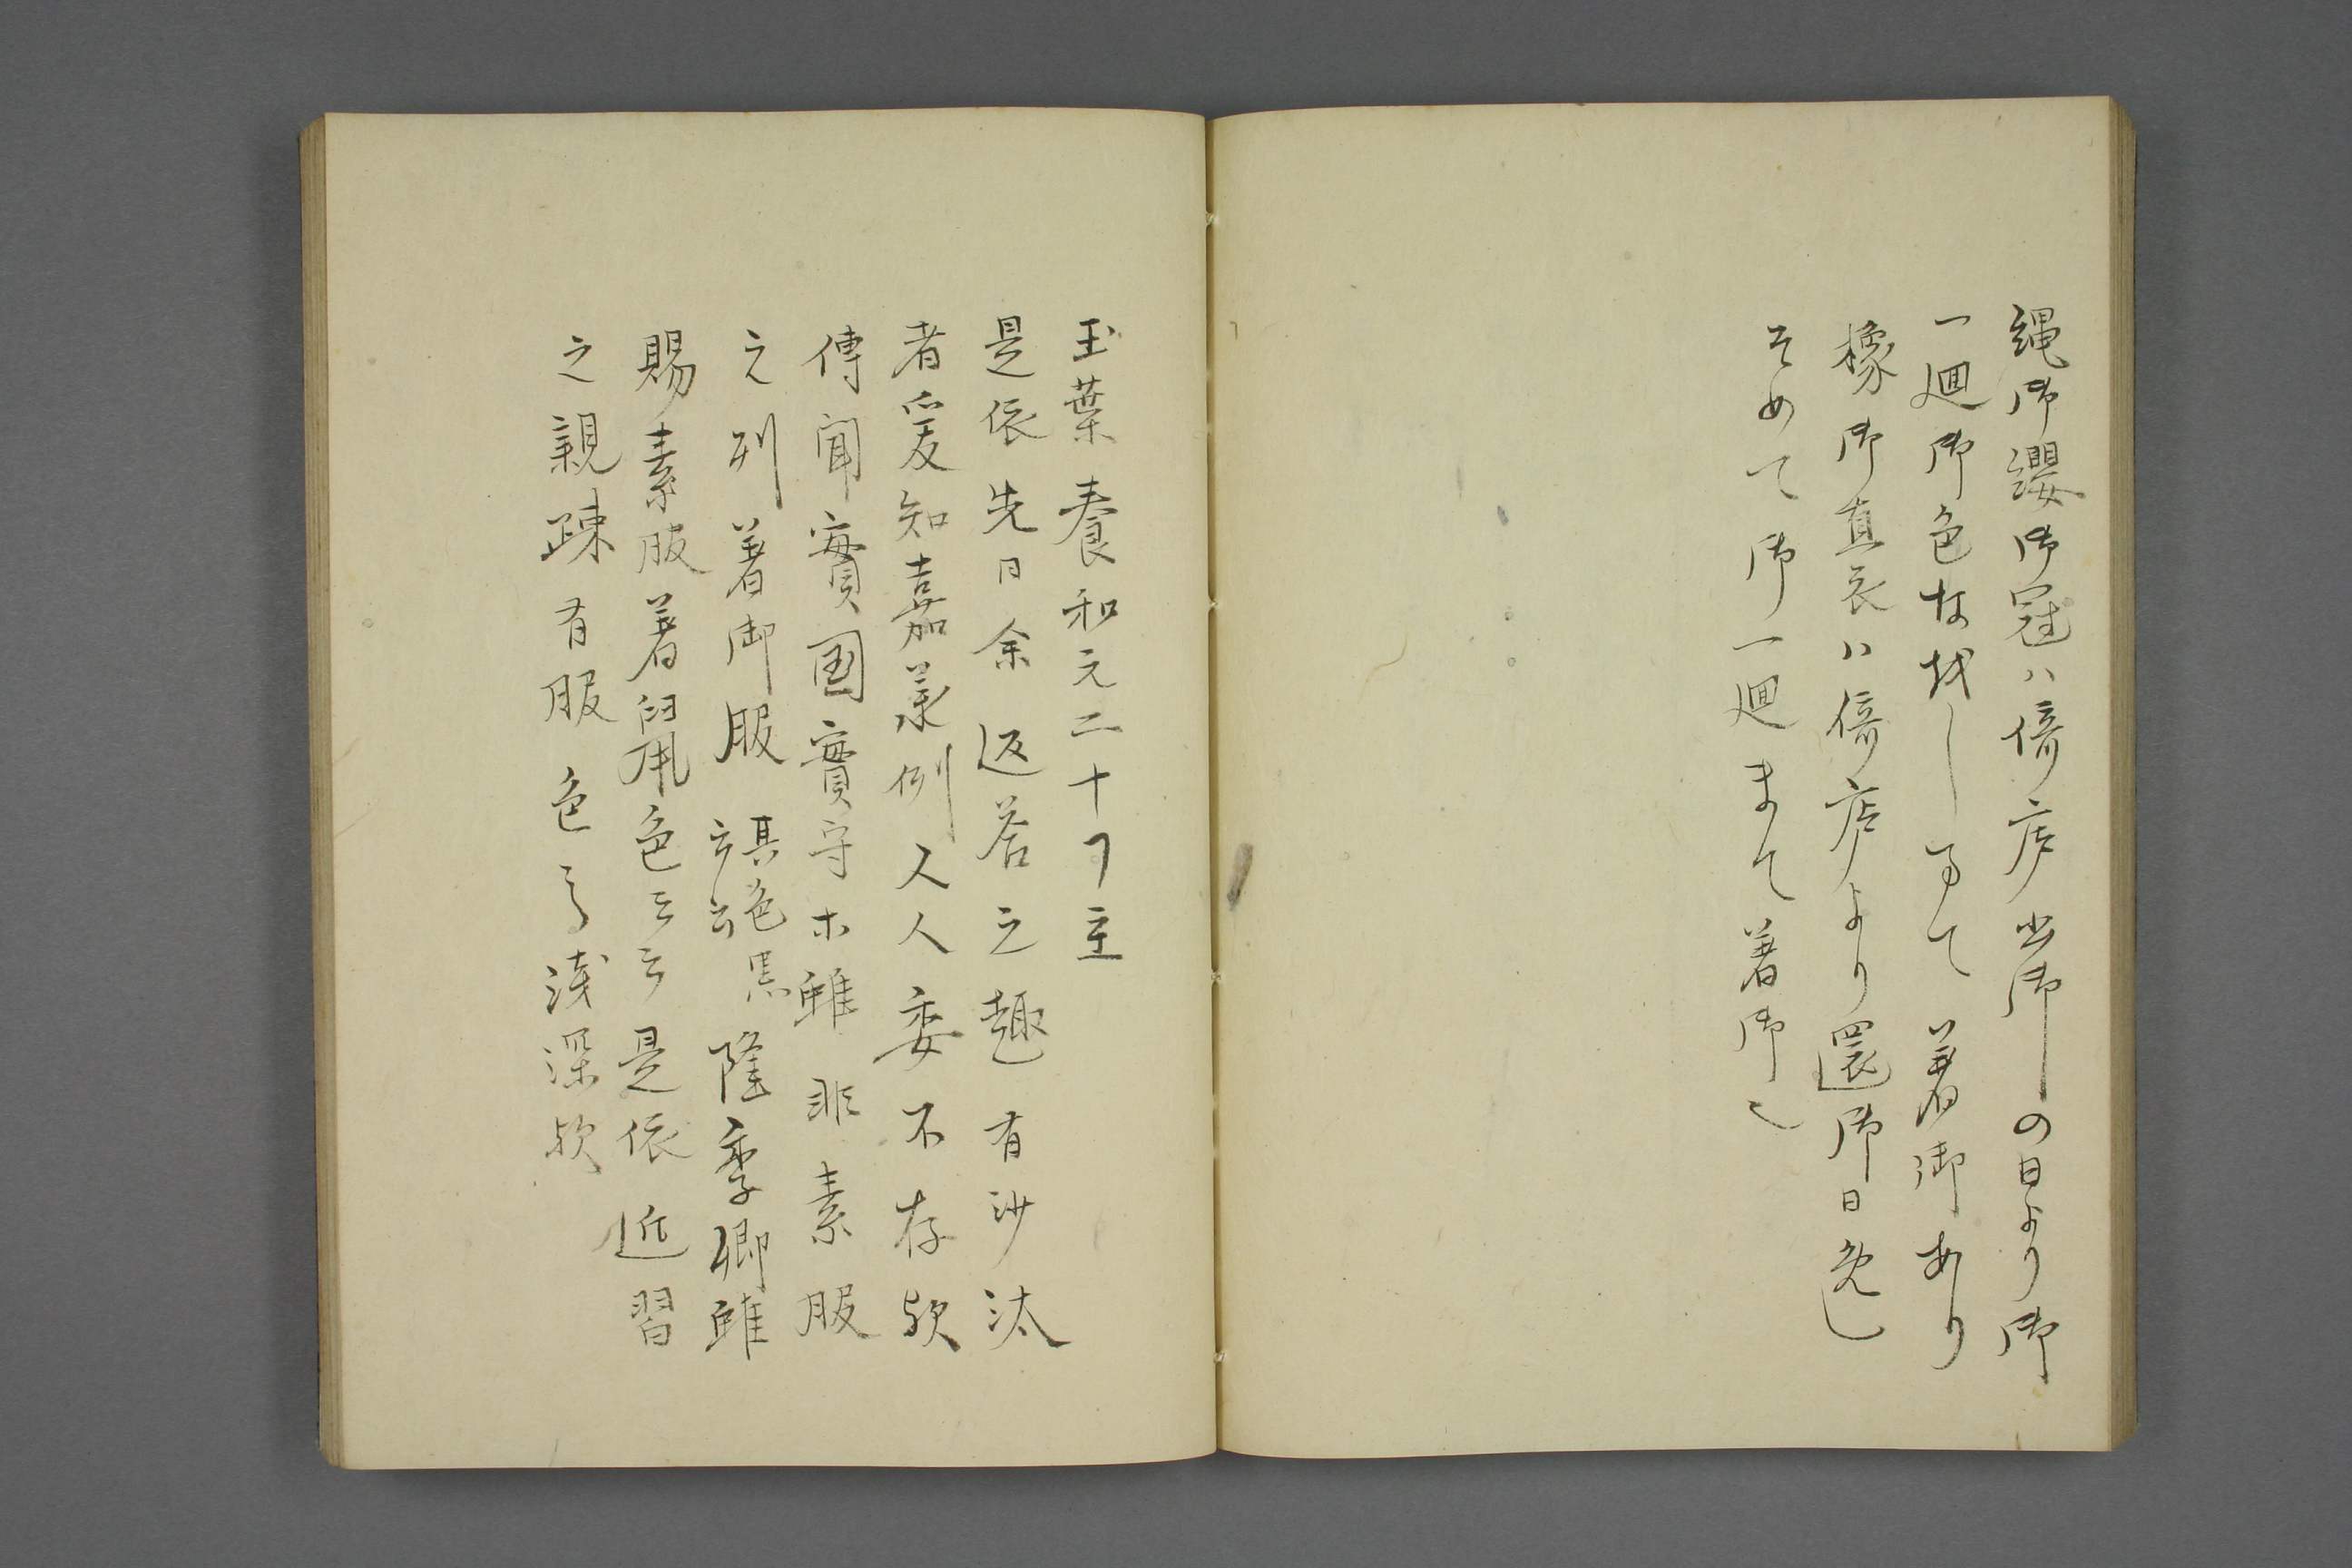 縄御纓御冠ハ倚廬出御の日より御
一廻御色なおしまて著御あり
橡御直衣ハ倚廬より還御日免し
そめて御一廻まて著御也
玉葉養和元二十丁主
是依先日余返答之趣有沙汰
者爰知嘉承例人人委不存歟
傳聞實国實守木雖非素服
之列著御服其色黒云々隆季卿雖
賜素服著鼠色云云是依近習
之親疎有服色之浅深歟